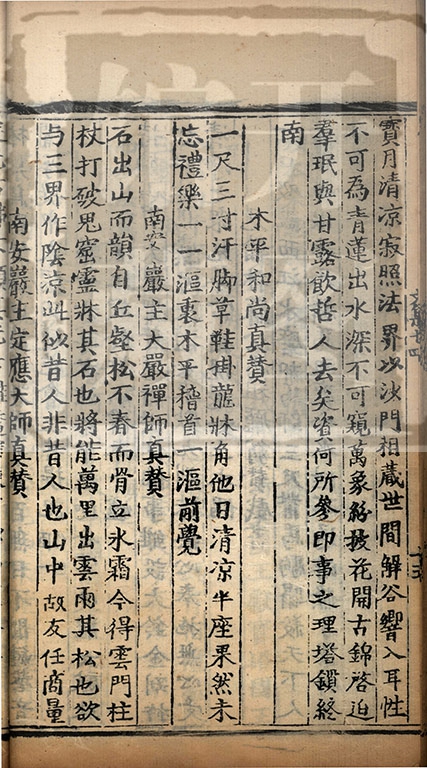 寳月清凉寂照法界以沙門相藏世間解谷響入耳性
不可為青蓮出水深不可窺萬象紛披花開古錦啓迪
羣珉與甘露飲哲人去矣資何所參即事之理塔鎖終
南
木平和尚真賛
一尺三寸汗脚草鞋掛龍牀角他日清凉半座果然未
忘禮樂一一漚裏木平稽首一漚前覺
南安巖主大嚴禪師真賛
石出山而韻自丘壑松不春而骨立氷霜今得雲門柱
杖打破鬼窟靈牀其石也將能萬里出雲雨其松也欲
与三界作陰凉此似昔人非昔人也山中故友任商量
南安巖主定應大師真賛